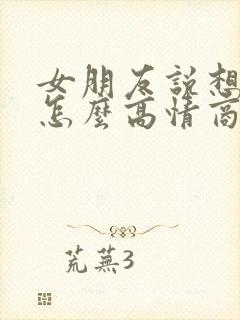 女朋友説想
怎麼高情商
荒蕪3